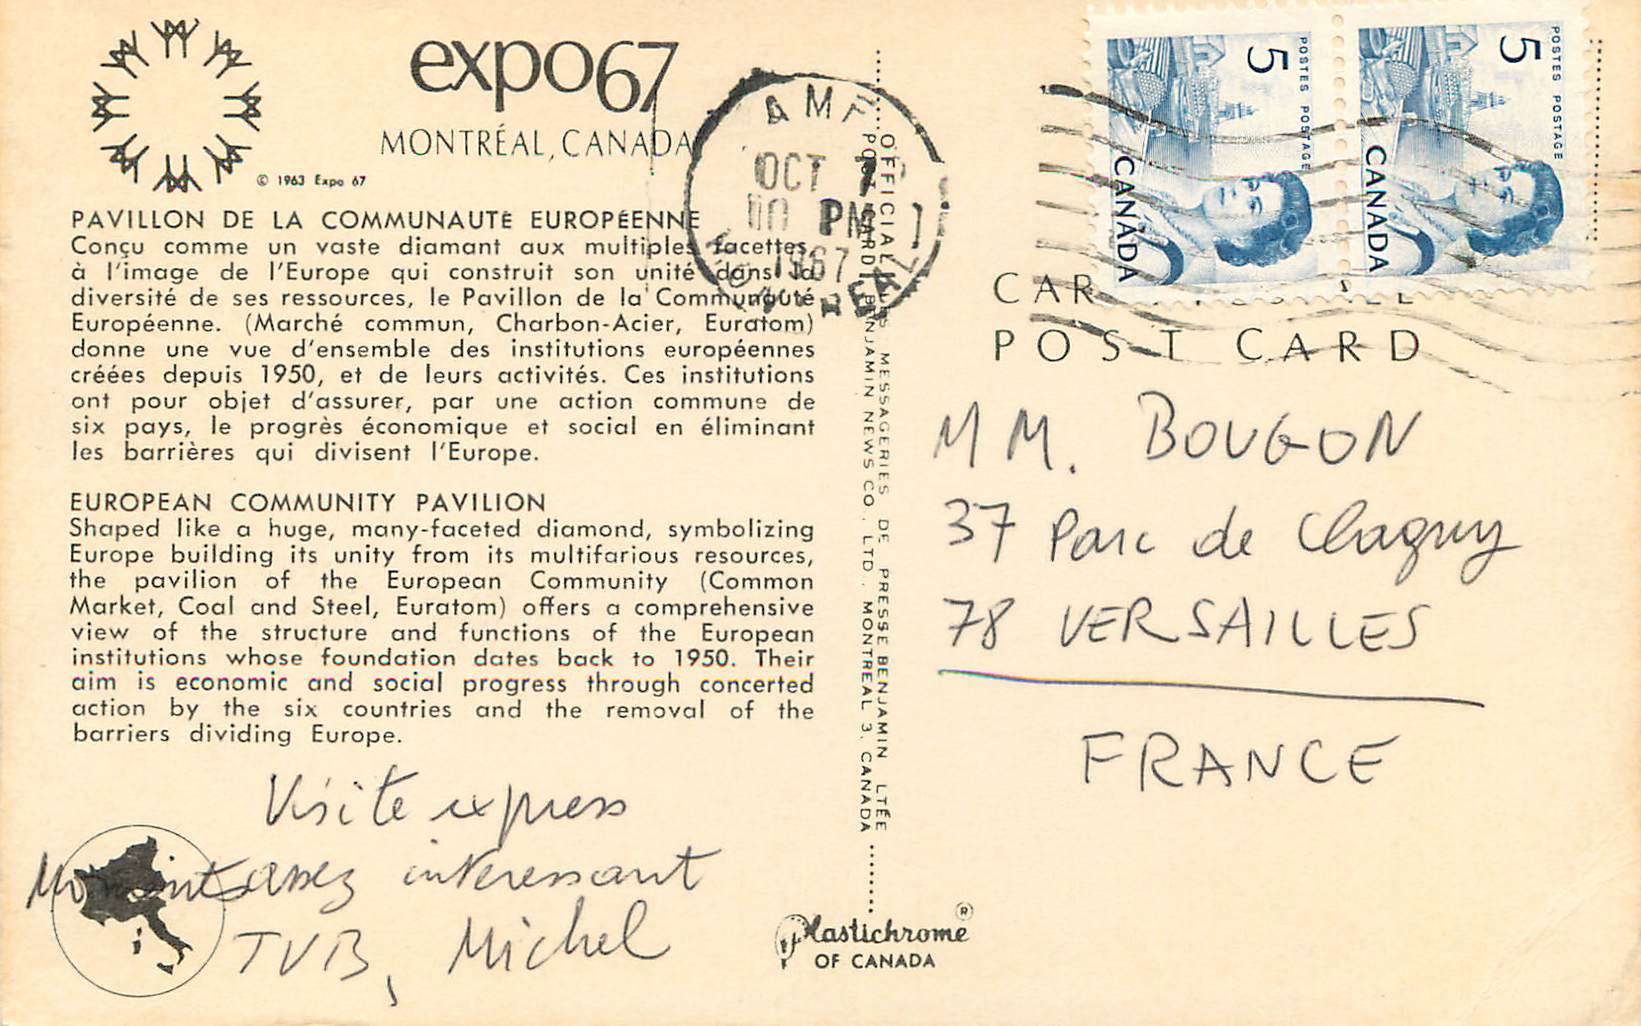 expo67
MONTRÉAL, CANADA
© 1963 Expo 67
PAVILLON DE LA COMMUNAUTÉ EUROPÉENNE
Conçu comme un vaste diamant aux multiples facettes,
à l'image de l'Europe qui construit son unité dans la
diversité de ses ressources, le Pavillon de la Communauté
Européenne. (Marché commun, Charbon-Acier, Euratom)
donne une vue d'ensemble des institutions européennes
créées depuis 1950, et de leurs activités. Ces institutions
ont pour objet d'assurer, par une action commune de
six pays, le progrès économique et social en éliminant
les barrières qui divisent l'Europe.
EUROPEAN COMMUNITY PAVILION
Shaped like a huge, many-faceted diamond, symbolizing
Europe building its unity from its multifarious resources,
the pavilion of the European Community (Common
Market, Coal and Steel, Euratom) offers a comprehensive
view of the structure and functions of the European
institutions whose foundation dates back to 1950. Their
aim is economic and social progress through concerted
action by the six countries and the removal of the
barriers dividing Europe.
Visite express
assez interessant
TVB, Michel
AMF
OCT
PM
1967
MONTREAL
OFFICIAL MESSAGERIES DE PRESSE BENJAMIN LTÉE
BENJAMIN NEWS CO. LTD. MONTREAL 3, CANADA
Plastichrome ®
OF CANADA
5 POSTES POSTAGE
CANADA
5 POSTES POSTAGE
CANADA
POST CARD
MM. BOUGON
37 Parc de Clagny
78 VERSAILLES
FRANCE